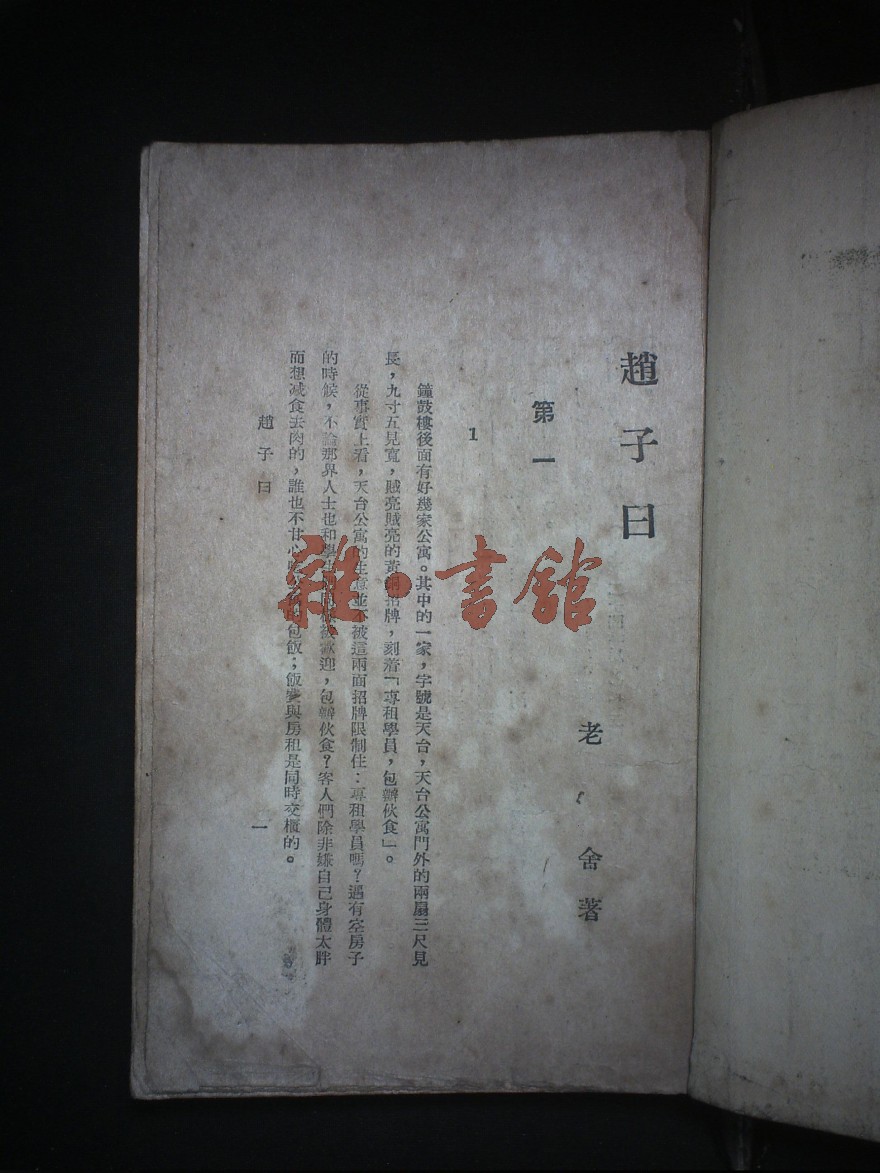 趙子曰
老舍著
第一
1
鐘鼓樓後面有好幾家公寓。其中的一家，字號是天台，天台公寓門外的兩扇三尺見
長，九寸五見寬，賊亮賊亮的黃銅招牌，刻着「專租學員，包辦伙食」。
從事實上看，天台公寓的生意並不被這兩面招牌限制住：專租學員嗎？遇有空房子
的時候，不論那界人士也和學生們同樣被歡迎，包辦伙食？客人們除非嫌自己身體太胖
而想减食去肉的，誰也不甘心吃公寓的包飯；飯費與房租是同時交櫃的。
趙子曰
一
雜·書館